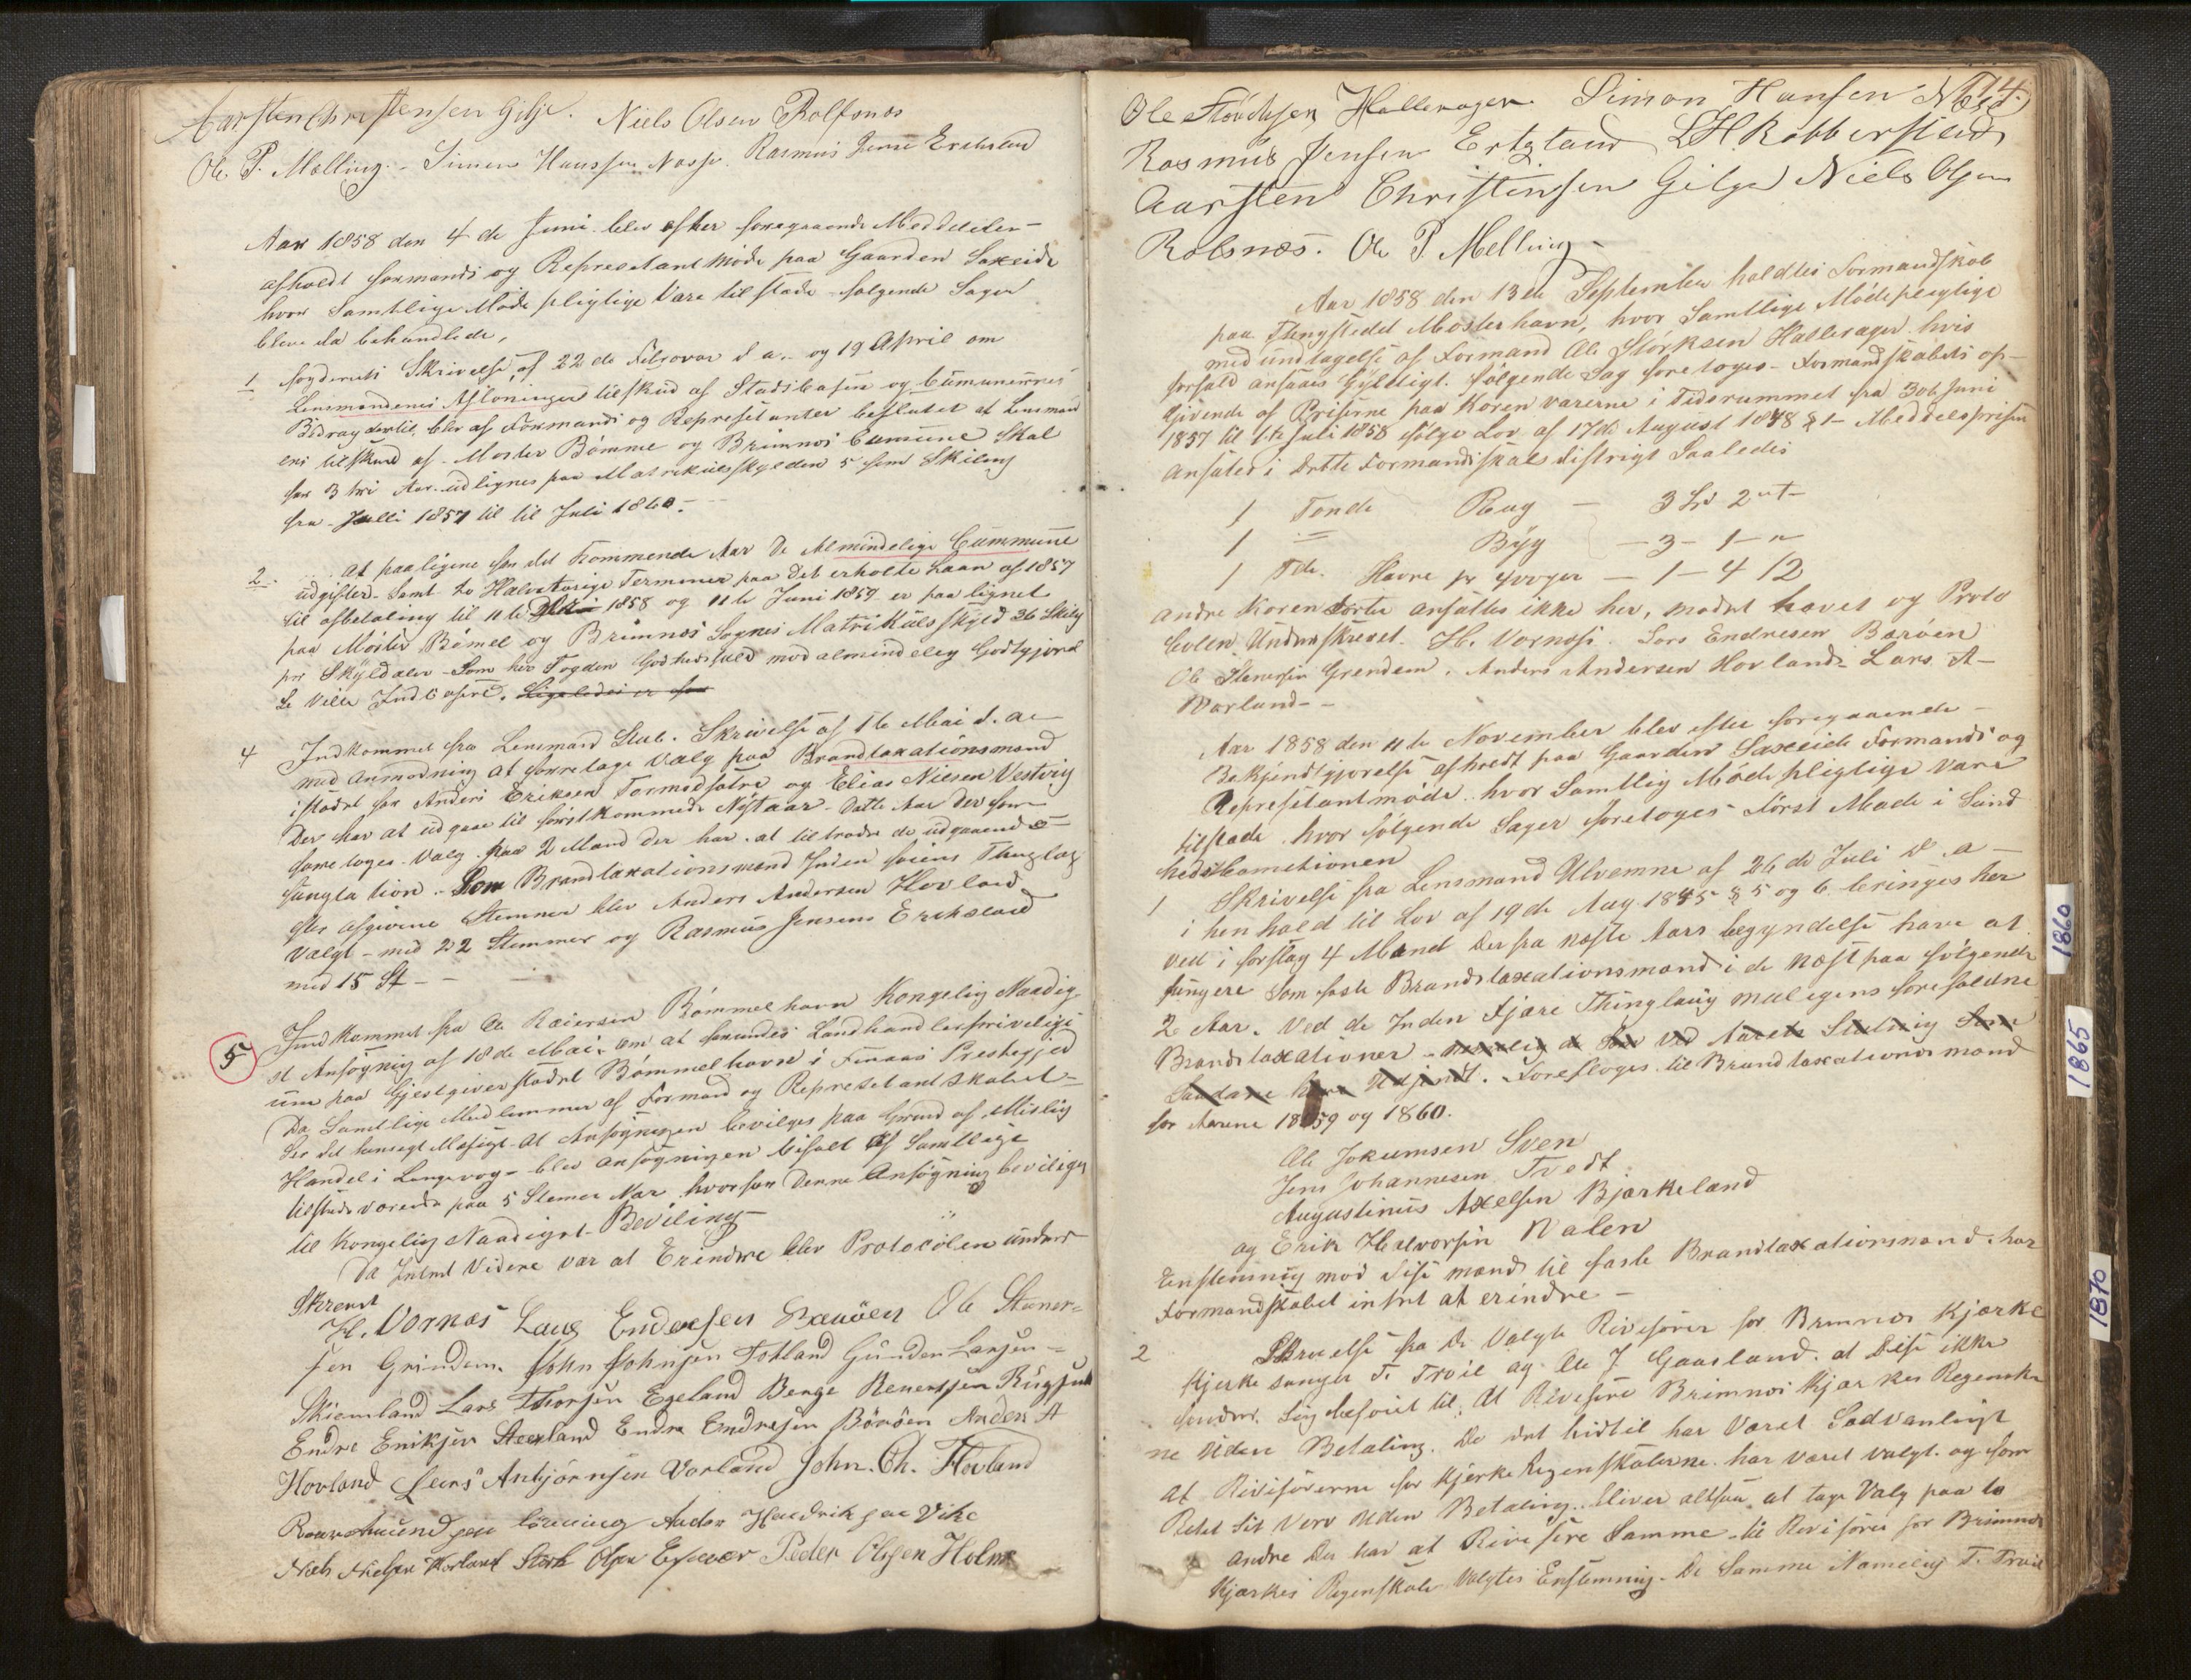 Aarsten Christensen Gilje. Niels Olsen Rolfsnos
Ole P. Melling. Simon Hanssen Næsse. Rasmus Jense Erekseland
Aar 1858 den 4de Juni blev efter foregaaende Meddelelser
afholdt formands og Represetant Møde paa Gaarden Saxeide
hvor Samtlige Møde pligtige Vare tilstæde følgende Sager
bleve da behandlede,
1 fogderiets Skrivelse af 22de Februar d a. og 19 April om
Lensmandenes Afløninger tilskud af Statskassen og Cumunernes
Bidrag dertil, blev af Formands og Represetanter besluttet at Lensmand
ens tilskud af Moster Bømme og Brimnes Cumune Skal
for 3 tri Aar udlignes paa Matrikulskylden 5 fem Skilling
fra Julli 1857 til til Juli 1860.
2. At paaligne for det Kommende Aar De Almindelige Cummune
udgifter Samt to Halvaarige Terminer paa Det erholte Laan af 1857
til afbetaling til 11te 1858 og 11te Juni 1859 er paa lignet
paa Møster Bømel og Brimnes Sognes Matrikuls Skyld 36 Skilling
pr Skylddaler Som her Fogden Godhedsfuld mod almindeleg Godtgjørel
se Ville Indkasere. Ligeledes er for
4 Indkommet fra Lensmand Stub. Skrivelse af 1te Mai d. a
med anmodning at forretage Valg paa Brandtaxationsmænd
istædet for Anders Eriksen Tormodsætre og Elias Nielsen Vestvig
Der har at udgaae til førstkommende Nytaar. Dette Aar der for
foretoges Valg paa 2 Mand der har at tiltræde de udgaaendes
fungtation. Som Brandtaxationsmænd Inden føiens Thinglag
efter afgivne Stemmer blev Anders Andersen Hovland
Valgt med 22 Stemmer og Rasmus Jensens Erekseland
med 15 St
5 Indkommet fra Ole Reiersen Bømmelhavn Kongelig Naadig
st Ansøgnig af 18de Mai om at forundes Landhandlerpriveligi
um paa Gjestgiverstædet Bømmelhavn i Finaas Prestegjed
Da Samtlige Medlemmer af Formand og Represetantskabet
Ser det hensigtMæsigt At Ansøgningen bevilges paa Grund af Mislig
Handel i Langevog blev ansøgningen bifalt af Samtlige
tilstædeværende paa 5 Stemer Nær hvorfor Denne Ansøgning beviliges
til Kongelig Naadigst Beviling
Da Intet Videre var at Erindre blev Protocolen under
Skrevet
H. Vornæs Lars Endresen Bærøen Ole Stener-
sen Grindem. John Johnsen Totland Gunder Larsen
Skiemland Lars Thorsen Egeland Berge Reinertsen
Endre Eriksen Endre Endresen Börøen Anders A
Hovland Lars Anbjørnsen Vorland John. Ch. Hovland
Anders Hendriksen Vike
Niels Nielsen Olsen Peder Olsen Holme
114.
Ole Størksen Hallerager Simon Hansen Næse
Rasmus Jensen Erkeland L H. Robberstad
Aarsten Christensen Gilge Niels Olsen
Rolsnæs. Ole P. Melling
Aar 1858 den 13de September holdtes Formandskab
paa Thingstedet Mosterhavn, hvor Samtlige Mødepligtige
med undtagelse af Formand Ole Størksen Hallerager hvis
forfald ansaaes Gyldtigt. følgende Sag foretoges Formandskabets op-
givende af Priserne paa Koren varerne i Tidsrummet fra 30te Juni
1857 til 1te Juli 1858 følge Lov af 17de August 1848 § 1 Meddelsprisen
ansætes i Dette Formandskabs distrigt Saaledes
1 Tønde Rug — 3 Sp 2 ort
1 = Byg — 3 - 1 - "
1 Tde. Havre pr 4 voger — 1 - 4 12
andre Koren Sorter ansættes ikke her, modet hævet og Proto
colen Underskrevet. H. Vornæs. Lars Endresen Bærøen
Ole Stenersen Grendem. Anders Andersen Hovland. Lars A-
Vorland
Aar 1858 den 11te November blev efter foregaaende
Bekjendtgjørelse afholdt paa Gaarden Saxeide Formands og
Represetantmøde. hvor Samtlig Møde pligtige Vare
tilstæde hvor følgende Sager foretoges Først Møde i Sund
hedskomitionen
1 Skrivelse fra Lensmand Ulvernne af 26de Juli d. a
i henhold til Lov af 19de Aug 1845 § 5 og 6 bringes her
ved i forslag 4 Mænd Der fra næste Aars begyndelse have at
fungere Som faste Brandtaxationsmænd i de næst paa følgende
2 Aar. Ved de Inden Fjære Thinglaug muligens forefaldne
Brandtaxationer
Saadane have Udjendt. Foresloges til Brandtaxationsmænd
for Aarene 1859 og 1860.
Ole Jokumsen Sven
Jens Johannesen Tvedt
Augustinus Axelsen Bjørkeland
og Erik Halvorsen Valen
Enstemmig mod disse mænd til faste Brandtaxationsmænd har
Formandskabet intet at erindre
2 Skrivelse fra De Valgte Riviserer for Brimnes Kjærke
Kjerke sanger T. Troie og Ole J. Gaasland. at Disse ikke
finder Sig beføiet til, At Revisere Brimnes Kjærkes Regenska
ne Uden Betaling. Da det hidtil har Været Sædvanligt
at Rivisørerne for Kjerke Regenskaberne har været valgt og som
Retet Sit Verv Uden Betaling. bliver altsaa at tage Valg paa to
andre Der har at Revisere Samme til Revisores for Brimnes
Kjærkes Regenskaber Valgtes Enstemmig De Samme Nemelig T. Troie
1860
1865
1870